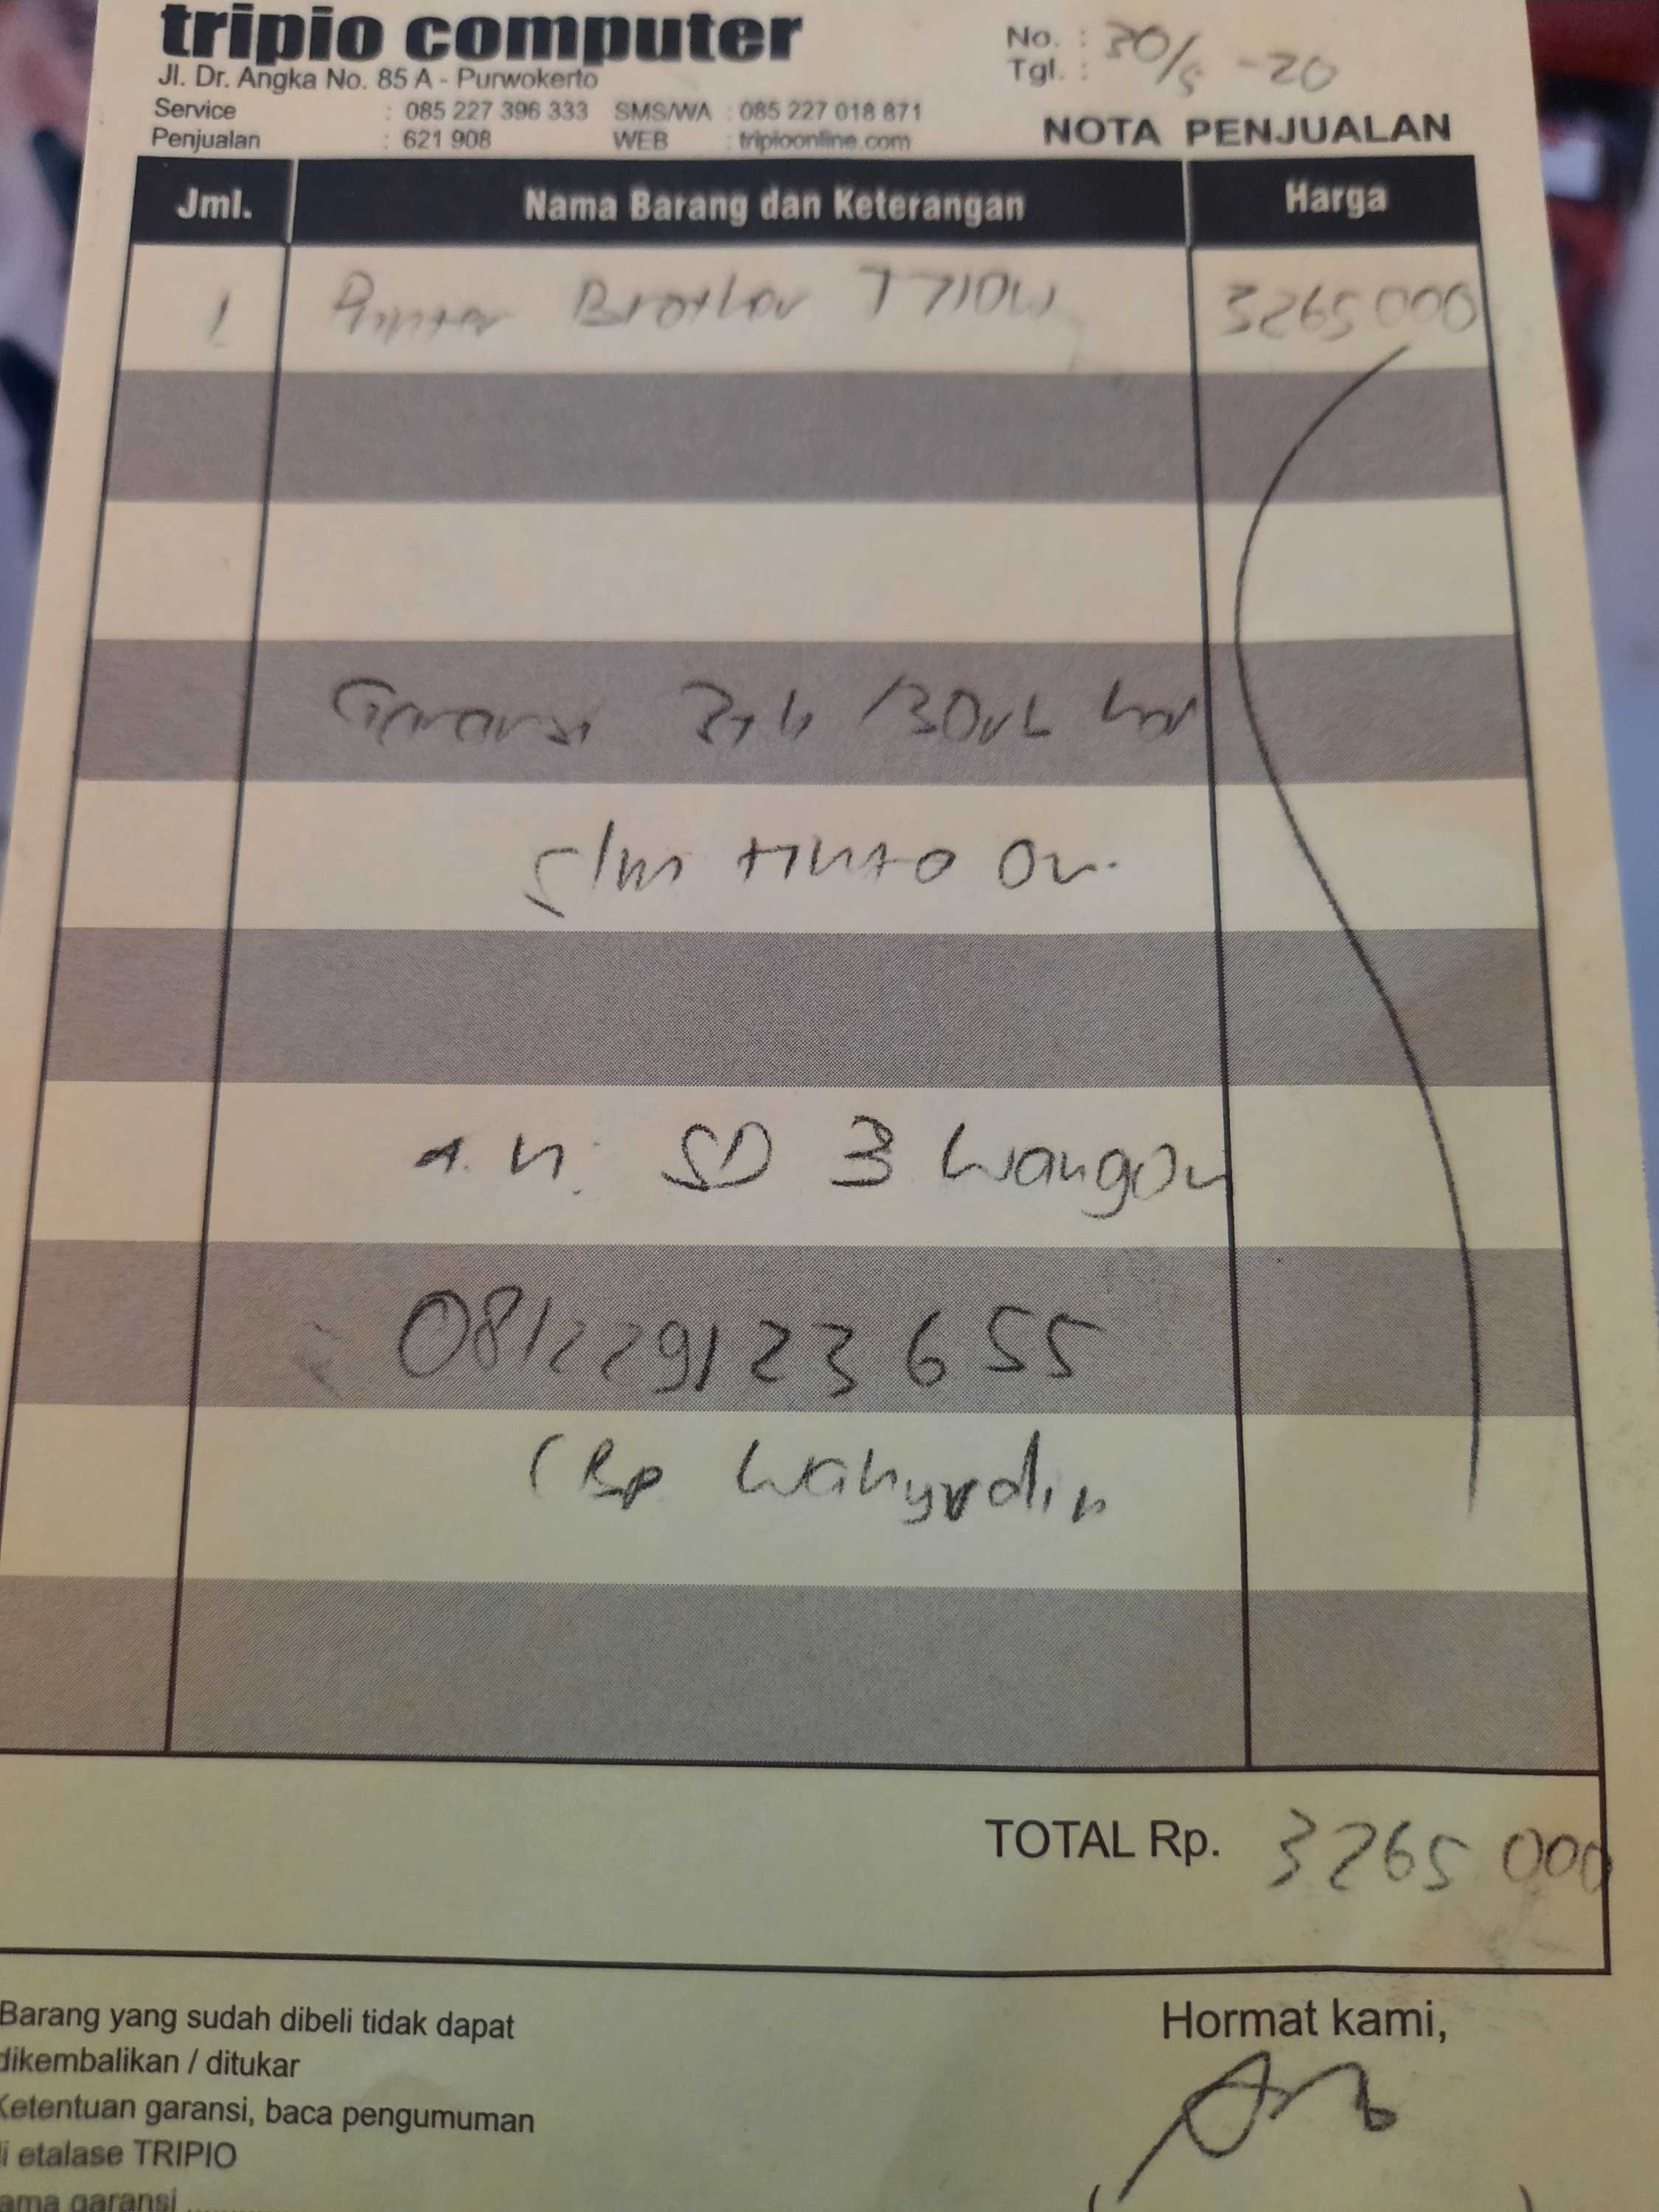 tripio computer
Jl. Dr. Angka No. 85 A - Purwokerto
Service : 085 227 396 333 SMS/WA : 085 227 018 871
Penjualan : 621 908 WEB : tripioonline.com
No. :
Tgl. : 30/5 -20
NOTA PENJUALAN
Jml. Nama Barang dan Keterangan Harga
1 Printer Brother T710W 3265000
Garansi 3th /30rb
tinta
a.n. SD 3 Wangon
081229123655
(Bp Wahyudin
TOTAL Rp. 3265 000
Barang yang sudah dibeli tidak dapat
dikembalikan / ditukar
Ketentuan garansi, baca pengumuman
di etalase TRIPIO
ama garansi ..........
Hormat kami,
( )